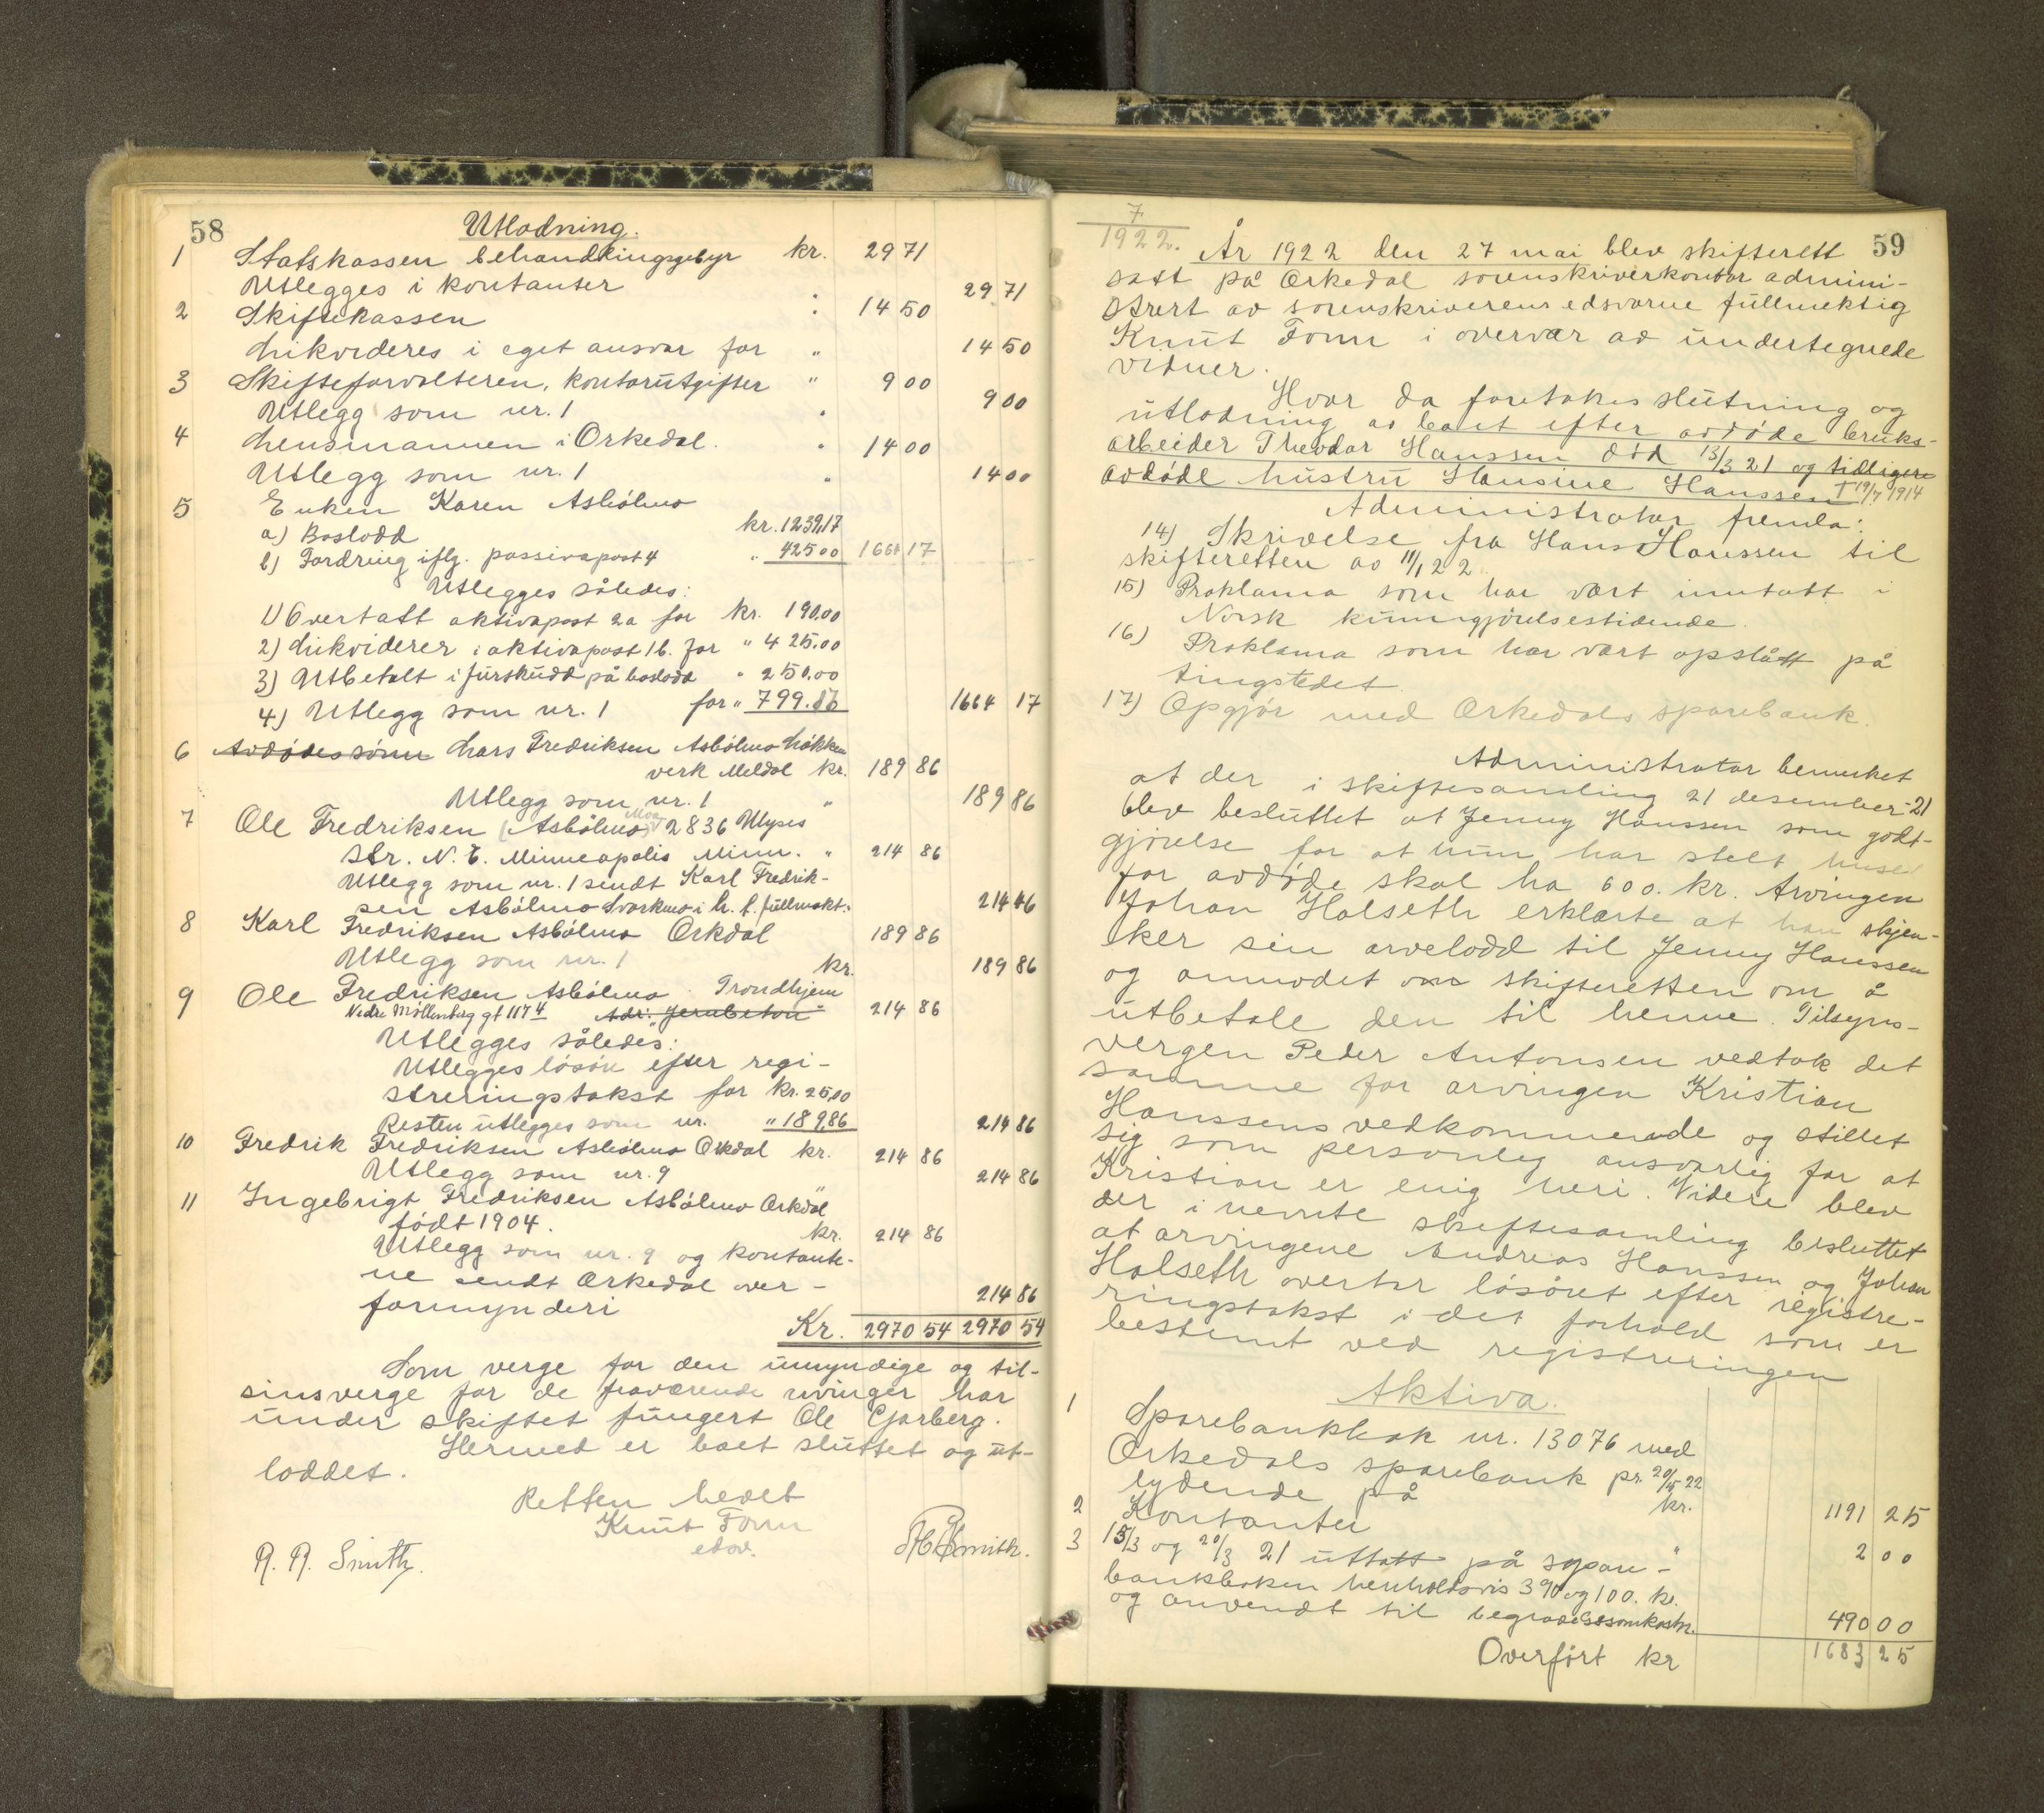 58
Utlodning.
1 Statskassen behandlingsgebyr kr. 29 71
Utlegges i kontanter 29 71
2 Skiftekassen " 14 50
Likvideres i eget ansvar for " 14 50
3 Skifteforvalteren, kontorutgifter " 9 00
Utlegg som nr. 1 " 9 00
4 Lensmannen i Orkedal. " 14 00
Utlegg som nr. 1 " 14 00
5 Enken Karen Asbölmo
a) Boslodd kr. 1239,17
b) Fordring iflg. passivapost 4 " 425 00 1664 17
Utlegges således:
1) Overtatt aktivapost 2a for kr. 190.00
2) Likviderer i aktivapost 1b. for " 425.00
3) Utbetalt i furskudd på boslodd " 250.00
4) Utlegg som nr. 1 for " 799.17 1664 17
6 Avdødes sønn Lars Fredriksen Asbölmo Løkken
verk Meldal kr. 189 86
Utlegg som nr. 1 " 189 86
7 Ole Fredriksen (Asbölmo) Moa 2836 Ulyses
Str. N. E. Minneapolis Minn. " 214 86
Utlegg som nr. 1 sendt Karl Fredrik-
sen Asbölmo Svorkmo i h. t. fullmakt: 214 86
8 Karl Fredriksen Asbölmo Orkdal 189 86
Utlegg som nr. 1 kr. 189 86
9 Ole Fredriksen Asbölmo Trondhjem
Nedre Möllenberg gt 117 4 Adr: Jernbeton 214 86
Utlegges således:
Utlegges lösöre efter regi-
streringstakst for kr. 25,00
Resten utlegges som nr. " 189,86 214 86
10 Fredrik Fredriksen Asbölmo Orkdal kr. 214 86
Utlegg som nr. 9 214 86
11 Ingebrigt Fredriksen Asbölmo Orkdal
født 1904. kr. 214 86
Utlegg som nr. 9 og kontante-
ne sendt Orkedal over-
formynderi 214 86
Kr. 2970 54 2970 54
Som verge for den umyndige og til-
sinsverge for de fraværende arvinger har
under skiftet fungert Ole Gjorberg.
Hermed er boet sluttet og ut-
loddet.
Retten hevet
Knut Fonn
edsv.
A. A. Smith. Smith.
7
1922.
59
År 1922 den 27 mai blev skifterett
satt på Orkedal sorenskriverkontor admini-
strert av sorenskriverens edsvorne fullmektig
Knut Fonn i overvær av undertegnede
vidner.
Hvor da foretokes slutning og
utlodning av boet efter avdøde bruks-
arbeider Theodor Hanssen död 13/3 21 og tidligere
avdøde hustru Hansine Hanssen † 19/7 1914
Administrator fremla:
14) Skrivelse fra Hans Hanssen til
skifteretten av 11/1 22
15) Proklama som har vært inntatt i
Norsk kunngjörelsestidende.
16) Proklama som har vært opslått på
tingstedet.
17) Opgjör med Orkedals sparebank.
Administrator bemerket
at der i skiftesamling 21 desember - 21
blev besluttet at Jenny Hanssen som godt-
gjörelse for at hun har stelt huset
for avdøde skal ha 600. kr. Arvingen
Johan Halseth erklærte at han skjen-
ker sin arvelodd til Jenny Hanssen
og anmodet om skifteretten om å
utbetale den til henne. Tilsyns-
vergen Peder Antonsen vedtok det
samme for arvingen Kristian
Hanssens vedkommende og stillet
sig som personlig ansvarlig for at
Kristian er enig heri. Videre blev
der i nevnte skiftesamling besluttet
at arvingene Andreas Hanssen og Johan
Halseth overtar lösöret efter registre-
ringstakst i det forhold som er
bestemt ved registreringen
Aktiva.
1 Sparebankbok nr. 13076 med
Orkedals sparebank pr. 20/5 22
lydende på kr. 1191 25
2 Kontanter " 2 00
3 15/3 og 20/3 21 uttatt på spare-
bankboken henholdsvis 390 og 100. kr.
og anvendt til begravelsesomkostn. 490 00
Overfört kr 1683 25